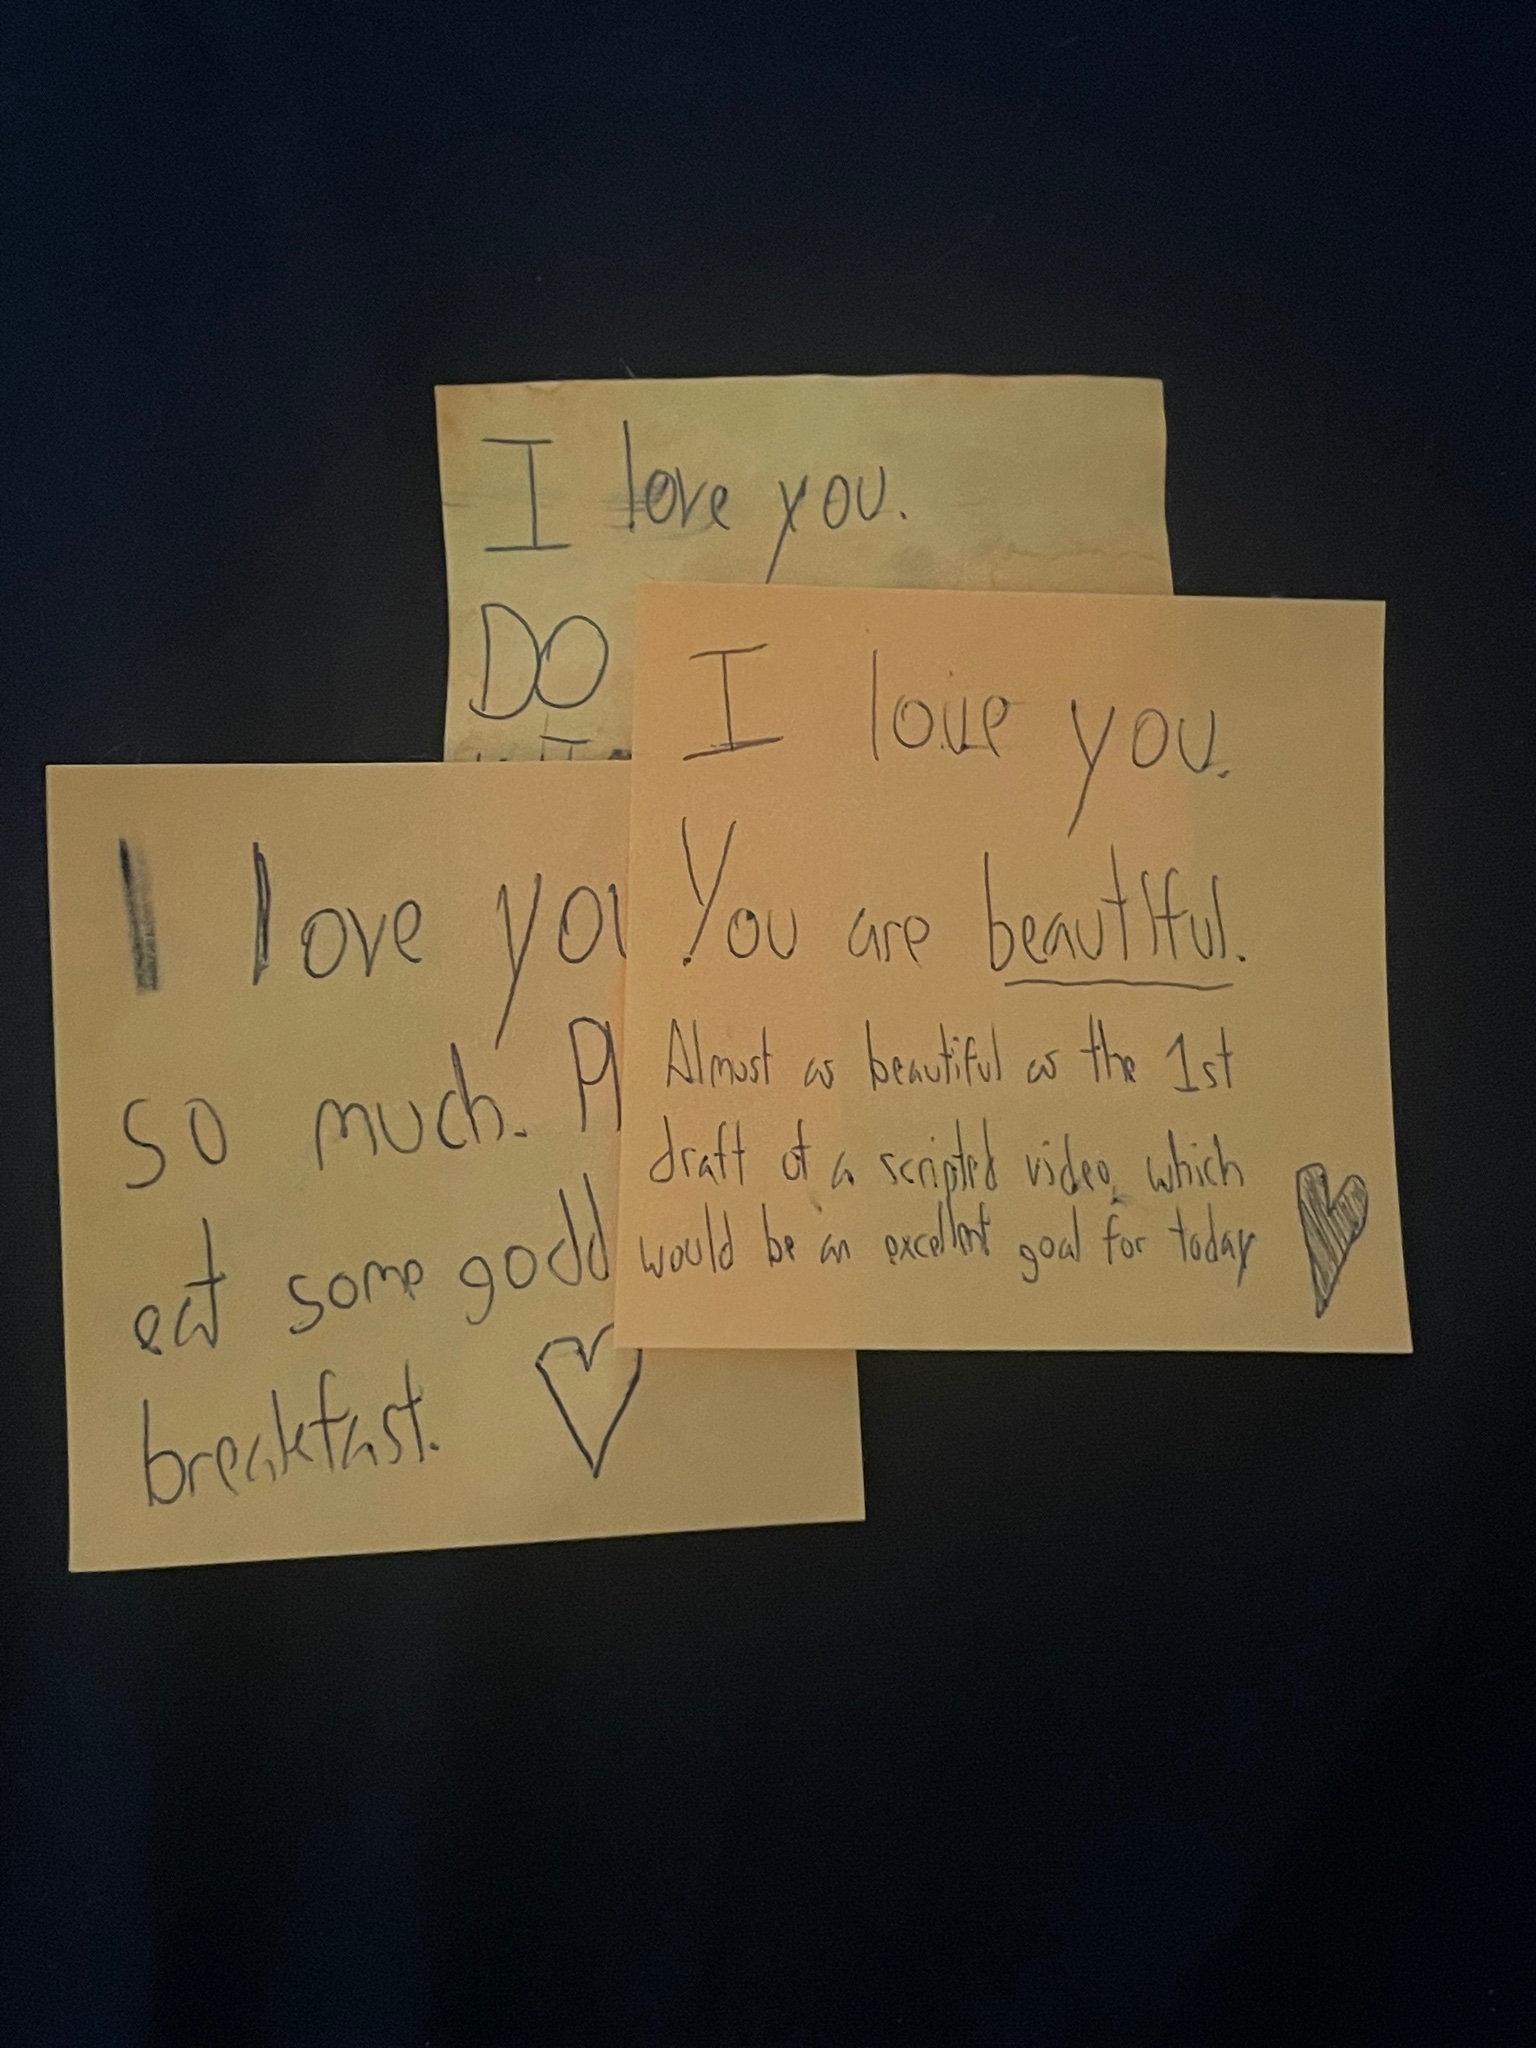 I love you.
DO
I love you
so much. Pl
eat some good
breakfast.
I love you.
You are beautiful.
Almost as beautiful as the 1st
draft of a scripted video, which
would be an excellent goal for today